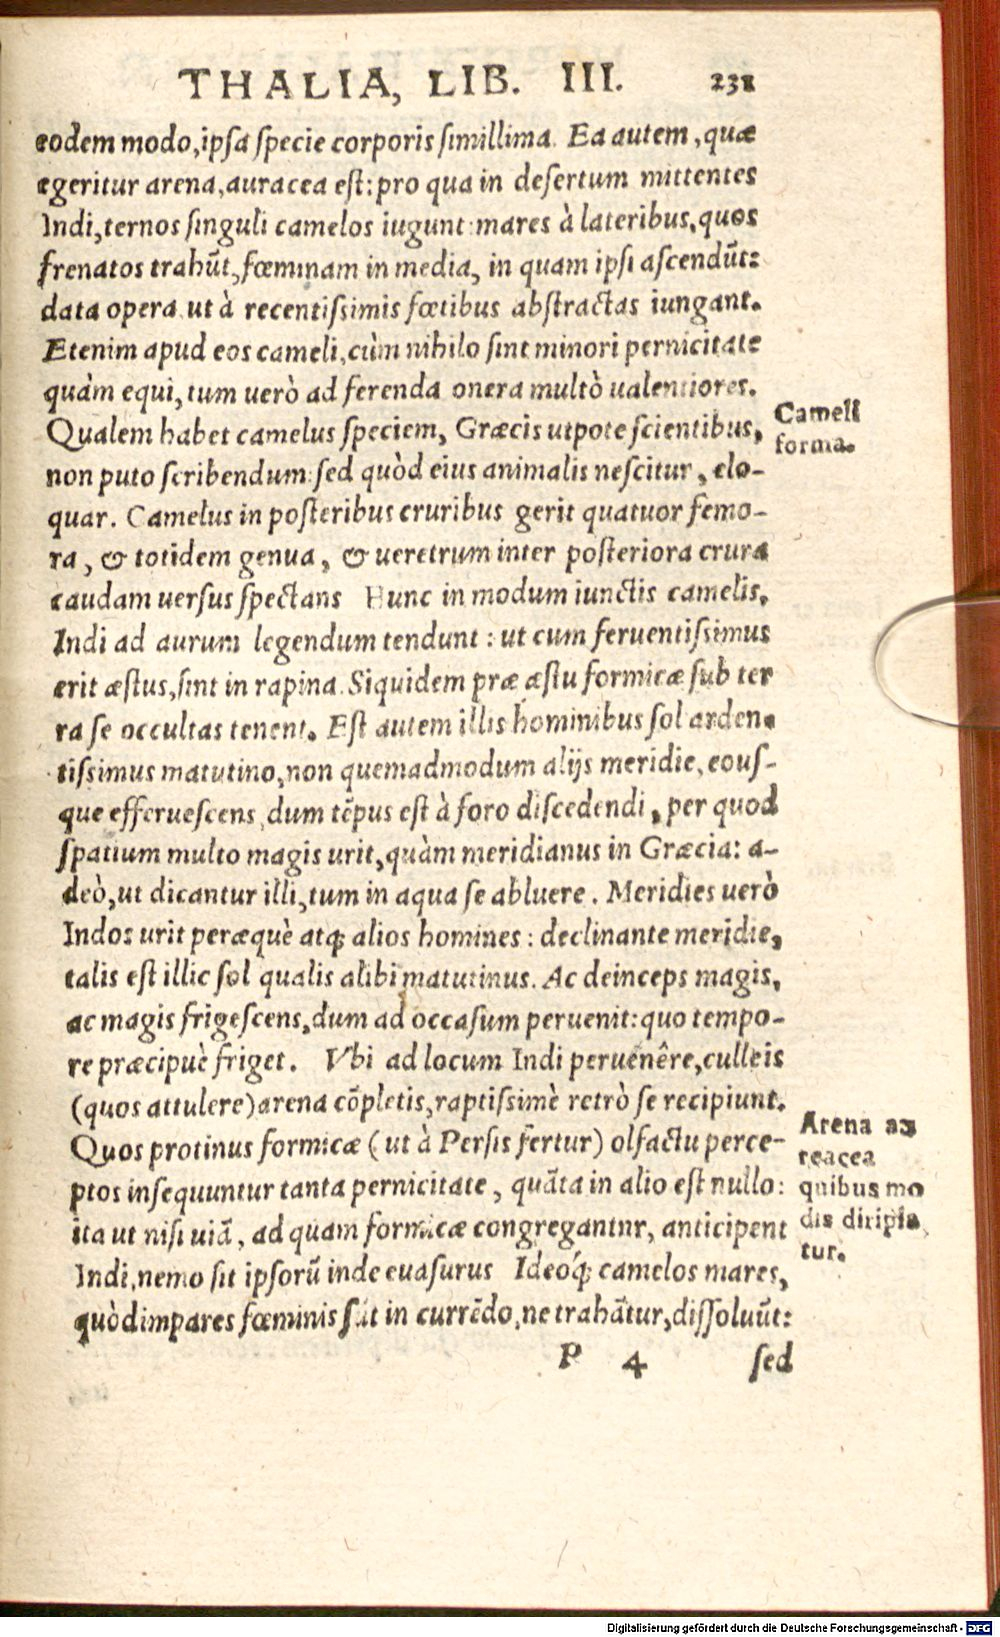 THALIA, LIB. III. 231
eodem modo, ipſa ſpecie corporis ſimillima. Ea autem, quæ
egeritur arena, auracea eſt: pro qua in deſertum mittentes
Indi, ternos ſinguli camelos iugunt: mares à lateribus, quos
frenatos trahūt, fœminam in media, in quam ipſi aſcendūt:
data opera ut à recentiſsimis fœtibus abſtractas iungant.
Etenim apud eos cameli, cùm nihilo ſint minori pernicitate
quàm equi, tum uerò ad ferenda onera multò ualentiores.
Qualem habet camelus ſpeciem, Græcis utpote ſcientibus,
Cameli
forma.
non puto ſcribendum: ſed quòd eius animalis neſcitur, elo-
quar. Camelus in poſteribus cruribus gerit quatuor femo-
ra, & totidem genua, & ueretrum inter poſteriora crura
caudam uerſus ſpectans Hunc in modum iunctis camelis,
Indi ad aurum legendum tendunt: ut cum feruentiſsimus
erit æſtus, ſint in rapina. Siquidem præ æſtu formicæ ſub ter
ra ſe occultas tenent. Eſt autem illis hominibus ſol arden-
tiſsimus matutino, non quemadmodum alijs meridie, eouſ-
que efferueſcens, dum tēpus eſt à foro diſcedendi, per quod
ſpatium multo magis urit, quàm meridianus in Græcia: a-
deò, ut dicantur illi, tum in aqua ſe abluere. Meridies uerò
Indos urit peræquè atq; alios homines: declinante meridie,
talis eſt illic ſol qualis alibi matutinus. Ac deinceps magis,
ac magis frigeſcens, dum ad occaſum peruenit: quo tempo-
re præcipuè friget. Vbi ad locum Indi peruenêre, culleis
(quos attulere) arena cōpletis, raptiſsimè retrò ſe recipiunt.
Arena au
reacea
quibus mo
dis diripia
tur.
Quos protinus formicæ (ut à Perſis fertur) olfactu perce-
ptos inſequuntur tanta pernicitate, quāta in alio eſt nullo:
ita ut niſi uiā, ad quam formicæ congregantur, anticipent
Indi, nemo ſit ipſorū inde euaſurus Ideóq; camelos mares,
quòd impares fœminis ſūt in currēdo, ne trahātur, diſſoluūt:
P 4 ſed
Digitalisierung gefördert durch die Deutsche Forschungsgemeinschaft - DFG